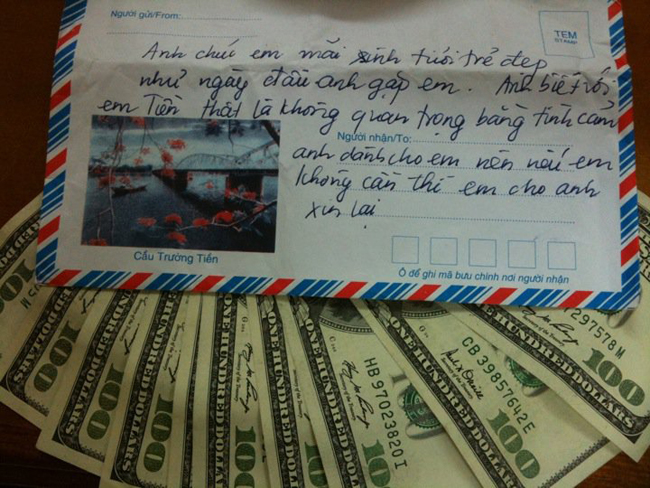 Người gửi/From:
TEM
STAMP
Anh chúc em mãi xinh tươi trẻ đẹp
như ngày đầu anh gặp em. Anh biết với
em Tiền thật là không quan trọng bằng tình cảm
Người nhận/To:
anh dành cho em nên nếu em
không cần thì em cho anh
xin lại
Cầu Trường Tiền
Ô để ghi mã bưu chính nơi người nhận
100
ONE HUNDRED DOLLARS
HB 97023820 I
100
CB 39857642 E
100
7297578 M
100
ONE HUNDRED DOLLARS